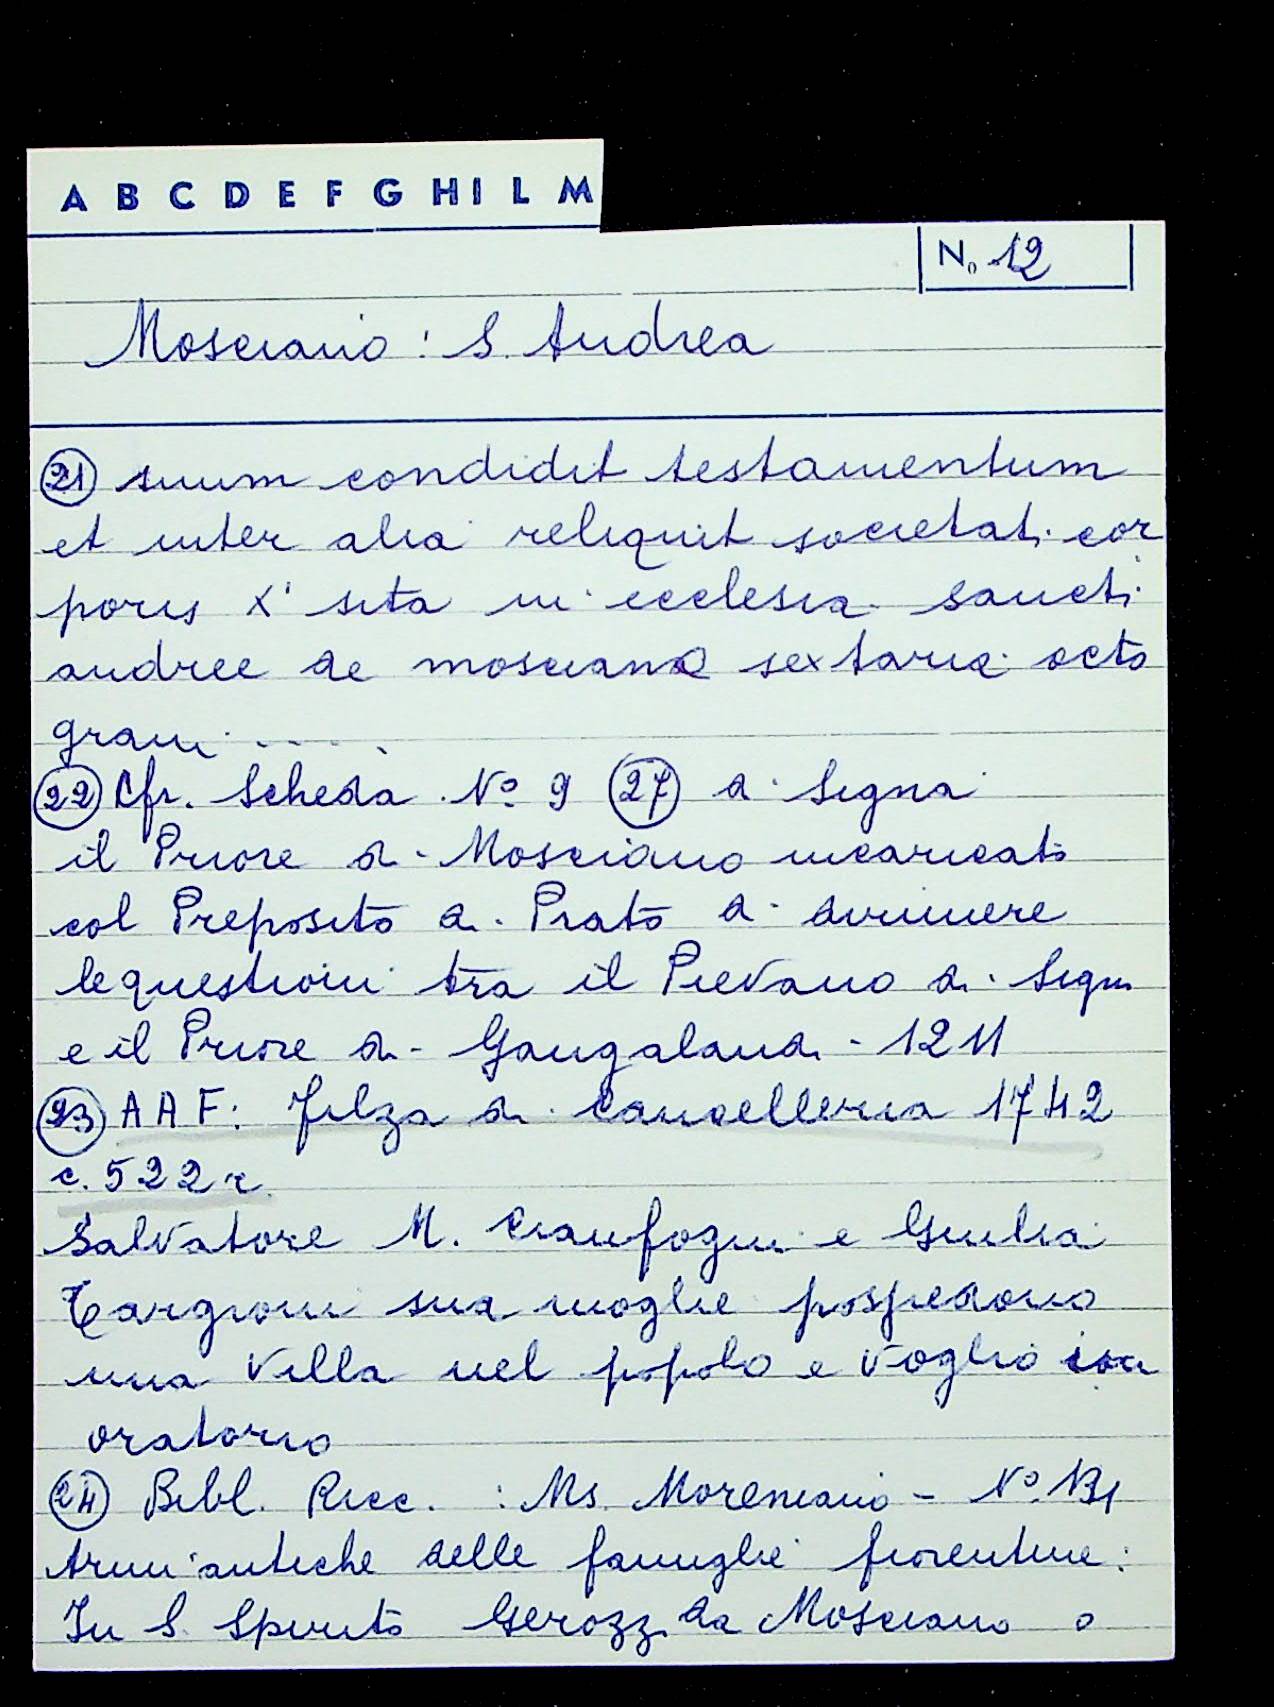 A B C D E F G H I L M
No 12
Mosciano: S. Andrea
21 suum condidit testamentum
et inter alia reliquit societati cor
poris Xi sita in ecclesia sancti
andree de mosciano sextaria octo
grani .....
22 Cfr. Scheda No 9 27 di Signa
il Priore di Mosciano incaricato
col Preposito di Prato di dirimere
le questioni tra il Pievano di Signa
e il Priore di Gangalandi - 1211
23 AAF: Filza di Cancelleria 1742
c. 522 r.
Salvatore M. Cianfogni e Giulia
Targioni sua moglie possedono
una Villa nel popolo e voglio
oratorio
24 Bibl. Ricc. : Ms. Moreniano - No 131
Armi antiche delle famiglie fiorentine:
In S. Spirito Gerozzi da Mosciano o